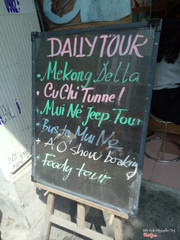 DAILY TOUR
• Mekong Delta
• Cu Chi Tunnel!
• Mui Né Jeep Tour
• Bus to Mui Né
• A O show booking
• Foody tour